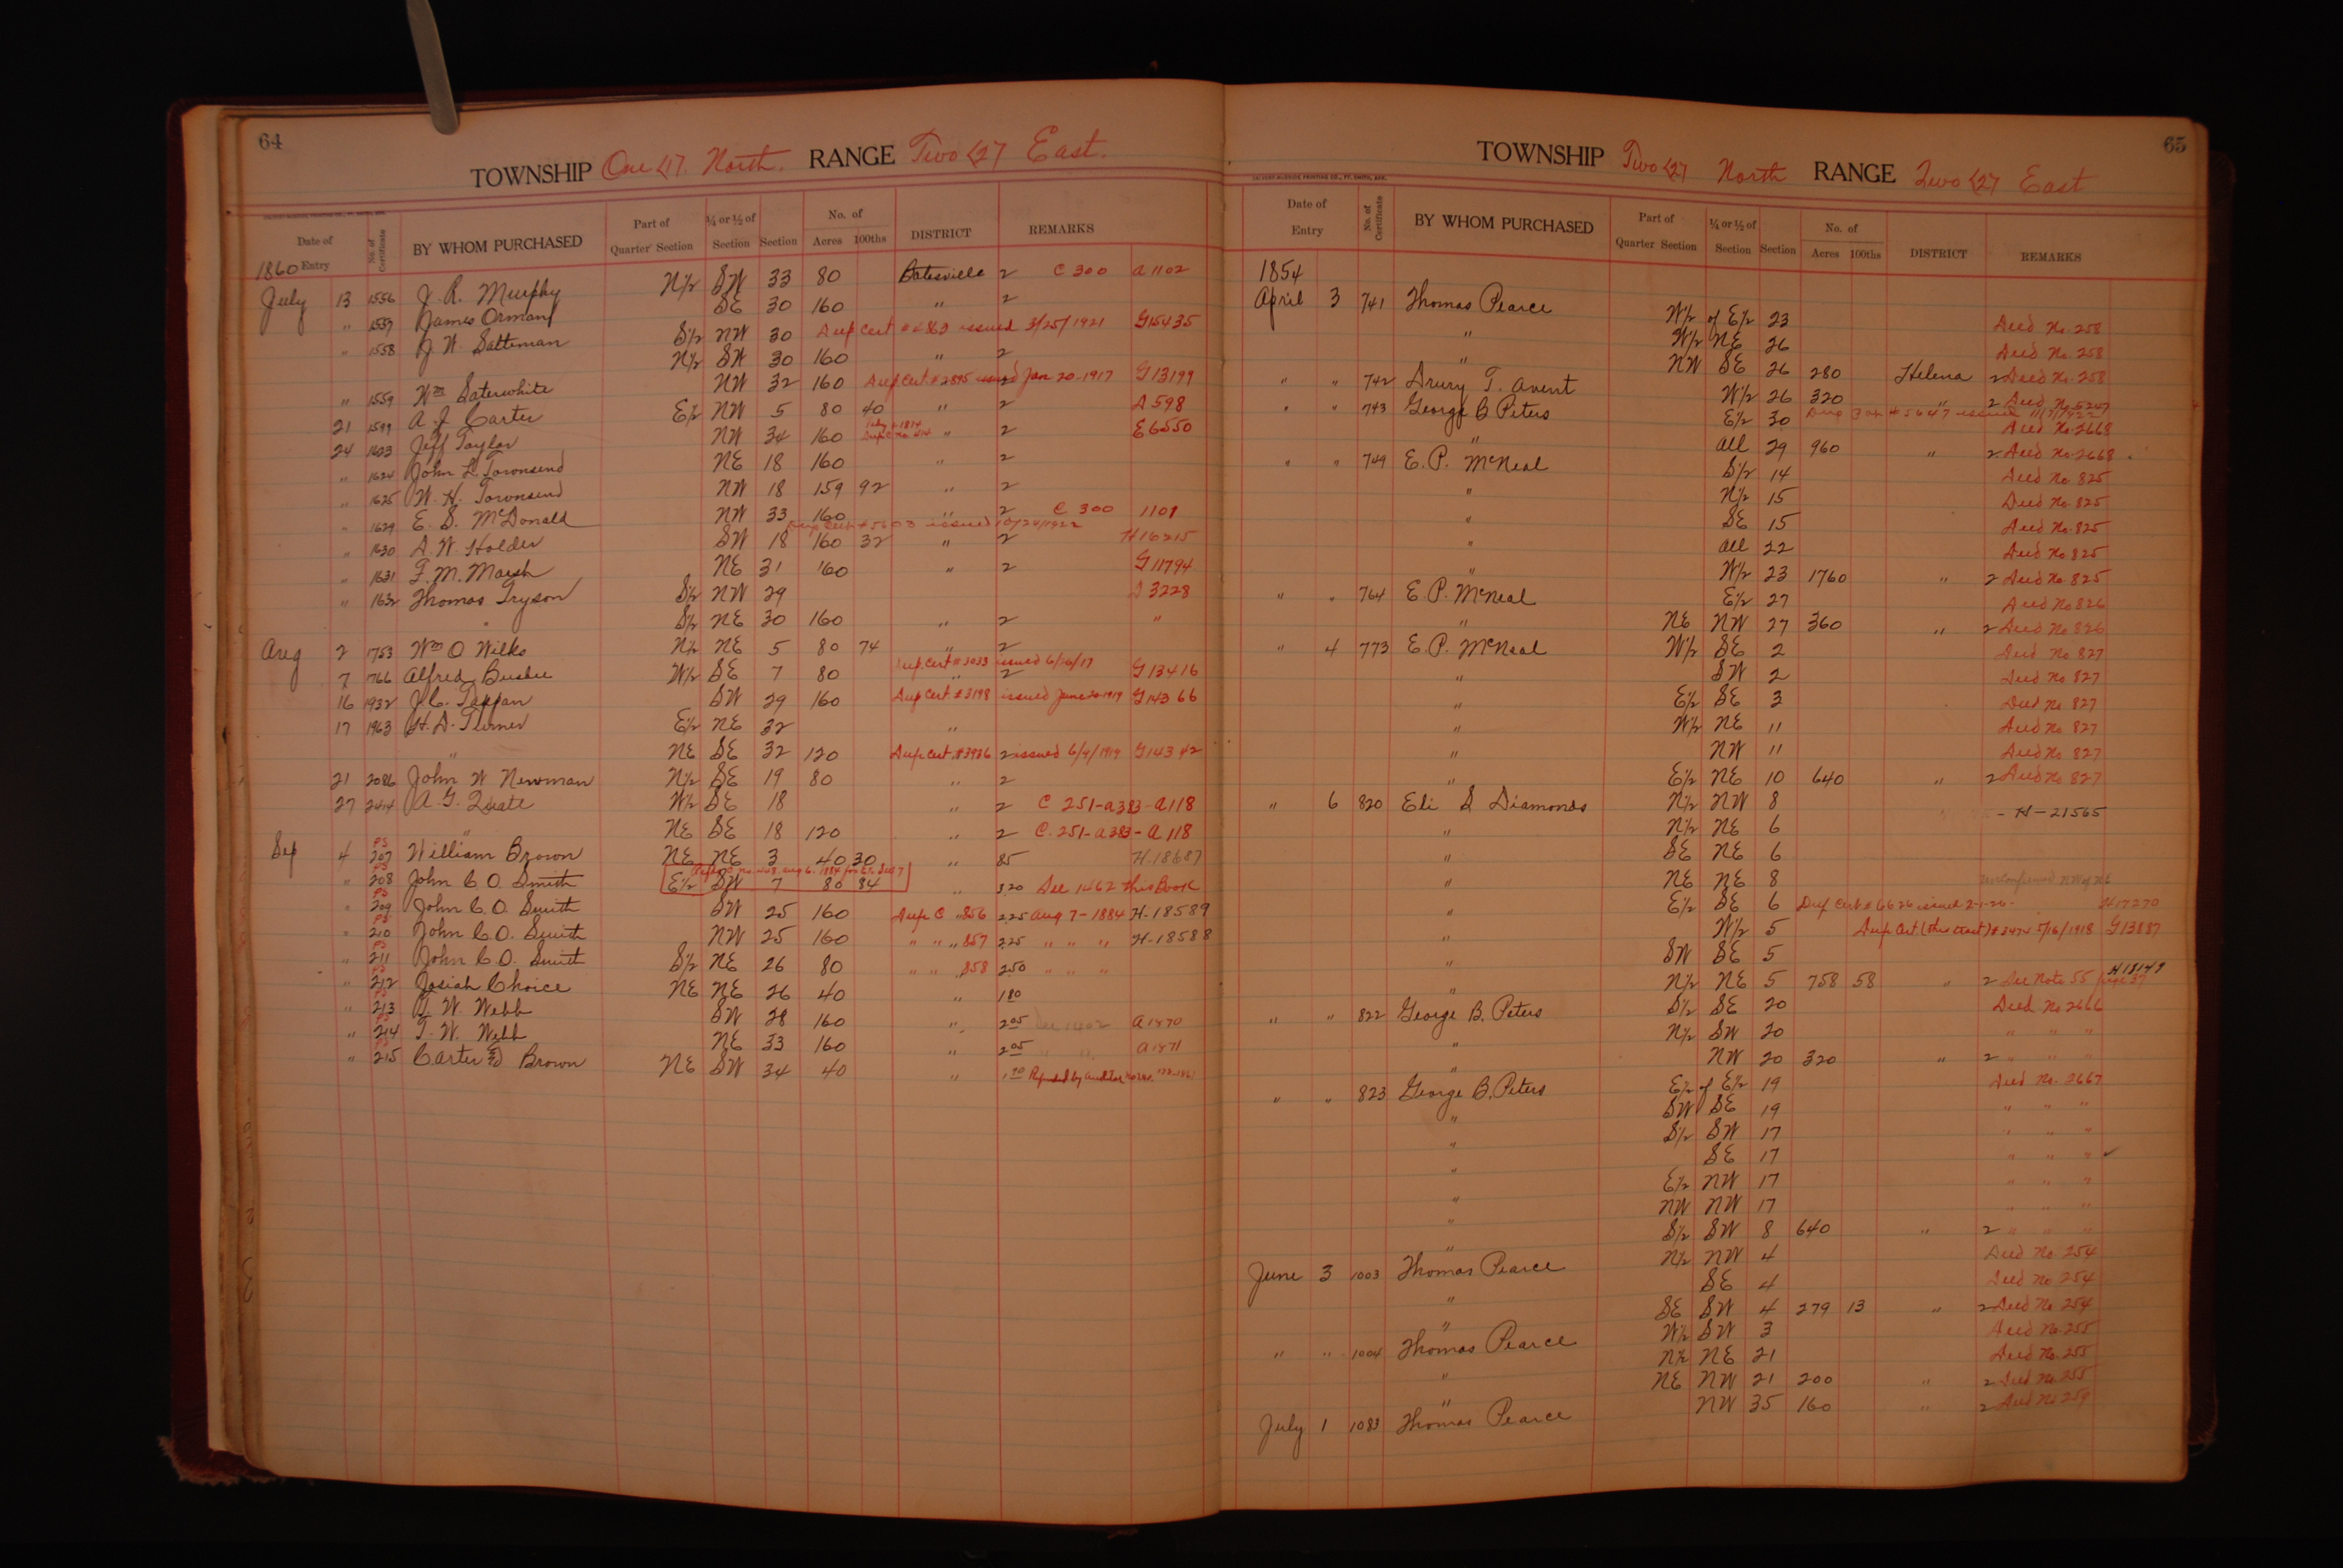 64
TOWNSHIP One <17. North. RANGE Two <27 East.
Date of Entry No. of Certificate BY WHOM PURCHASED Part of Quarter Section ¼ or ½ of Section Section No. of Acres 100ths DISTRICT REMARKS
1860
July 13 1556 J. R. Murphy N½ SW 33 80 Batesville 2 C 300 A 1102
" 1557 James Orman SE 30 160 " 2
" 1558 J. W. Saltsman S½ NW 30 Dup Cert # 4863 issued 3/25/1921 G15435
N½ SW 30 160 " 2
" 1559 Wm Saterwhite NW 32 160 Dup Cert # 2895 issued Jan 20-1917 G13199
21 1599 A. J. Carter E½ NW 5 80 40 " 2 A 598
24 1623 Jeff Taylor NW 34 160 " 2 E6550
" 1624 John L Townsend NE 18 160 " 2
" 1625 W. H. Townsend NW 18 159 92 " 2
" 1629 E. S. McDonald NW 33 160 " 2 C 300 1101
Dup Cert # 5603 issued 10/24/1922
" 1630 A. W. Holder SW 18 160 32 " 2 H16215
" 1631 F. M. Marsh NE 31 160 " 2 G11794
" 1632 Thomas Tryson S½ NW 29 A 3228
" S½ NE 30 160 " 2 "
Aug 2 1753 Wm O Wilks N½ NE 5 80 74 " 2
7 1766 Alfred Busbee W½ SE 7 80 Dup. Cert # 3033 issued 6/20/17 " 2 G13416
16 1932 J. C. Tappan SW 29 160 Dup Cert # 3198 issued June 20-1919 G14366
17 1963 H. D. Turner E½ NE 32 "
" NE SE 32 120 Dup Cert. # 3936 2 issued 6/4/1919 G14342
21 2086 John W Newman N½ SE 19 80 " 2
27 2414 A. G. Quate W½ SE 18 " 2 C 251-A383-A118
" NE SE 18 120 " 2 C. 251-A383-A118
Sep 4 PS 207 William Brown NE NE 3 40 30 " 85 H-18687
" PS 208 John C. O. Smith E½ SW 7 80 84 " 320 See 1462 this Book
" PS 209 John C. O. Smith SW 25 160 Dup C " 856 225 Aug 7-1884 H-18589
" PS 210 John C. O. Smith NW 25 160 " " " 857 225 " " " H-18588
" PS 211 John C. O. Smith S½ NE 26 80 " " 858 250 " " "
" PS 212 Josiah Choice NE NE 26 40 " 180
" PS 213 T. W. Webb SW 28 160 " 205 See 1402 A1870
" PS 214 T. W. Webb NE 33 160 " 205 " " A1871
" PS 215 Carter & Brown NE SW 34 40 " Refunded by Auditor
65
TOWNSHIP Two <27 North RANGE Two <27 East
CALVERT-McBRIDE PRINTING CO., FT. SMITH, ARK.
Date of Entry No. of Certificate BY WHOM PURCHASED Part of Quarter Section ¼ or ½ of Section Section No. of Acres 100ths DISTRICT REMARKS
1854
April 3 741 Thomas Pearce W½ of E½ 23 Deed No. 258
" W½ NE 26 Deed No 258
" NW SE 26 280 Helena 2 Deed No 258
" " 742 Drury T. Avent W½ 26 320 " 2 Deed No. 5247
" " 743 George B Peters E½ 30 Dup Cert # 5647 issued 11/7/1922 Deed No. 2668
" All 29 960 " 2 Deed No. 2668
" " 749 E. P. McNeal S½ 14 Deed No 825
" N½ 15 Deed No 825
" SE 15 Deed No 825
" All 22 Deed No 825
" W½ 23 1760 " 2 Deed No. 825
" " 764 E. P. McNeal E½ 27 Deed No 826
" NE NW 27 360 " 2 Deed No 826
" 4 773 E. P. McNeal W½ SE 2 Deed No 827
" SW 2 Deed No 827
" E½ SE 3 Deed No 827
" W½ NE 11 Deed No 827
" NW 11 Deed No 827
" E½ NE 10 640 " 2 Deed No 827
" 6 820 Eli S Diamonds N½ NW 8 - H-21565
" N½ NE 6
" SE NE 6
" NE NE 8
" E½ SE 6 Dup Cert # 6626 issued 2-1-26- H17270
" W½ 5 Dup Cert (this tract) # 3474 5/16/1918 G13887
" SW SE 5
" N½ NE 5 758 58 " 2 See Note 55 page 57 H18149
" " 822 George B. Peters S½ SE 20 Deed No 2666
" N½ SW 20 " " "
" NW 20 320 " 2 " " "
" " 823 George B. Peters E½ of E½ 19 Deed No. 2667
" SW SE 19 " " "
" S½ SW 17 " " "
" SE 17 " " " ✓
" E½ NW 17 " " "
" NW NW 17 " " "
" S½ SW 8 640 " 2 " " "
June 3 1003 Thomas Pearce N½ NW 4 Deed No 254
" SE 4 Deed No 254
" SE SW 4 279 13 " 2 Deed No 254
" " 1004 Thomas Pearce W½ SW 3 Deed No. 255
" N½ NE 21 Deed No. 255
" NE NW 21 200 " 2 Deed No. 255
July 1 1083 Thomas Pearce NW 35 160 " 2 Deed No 259